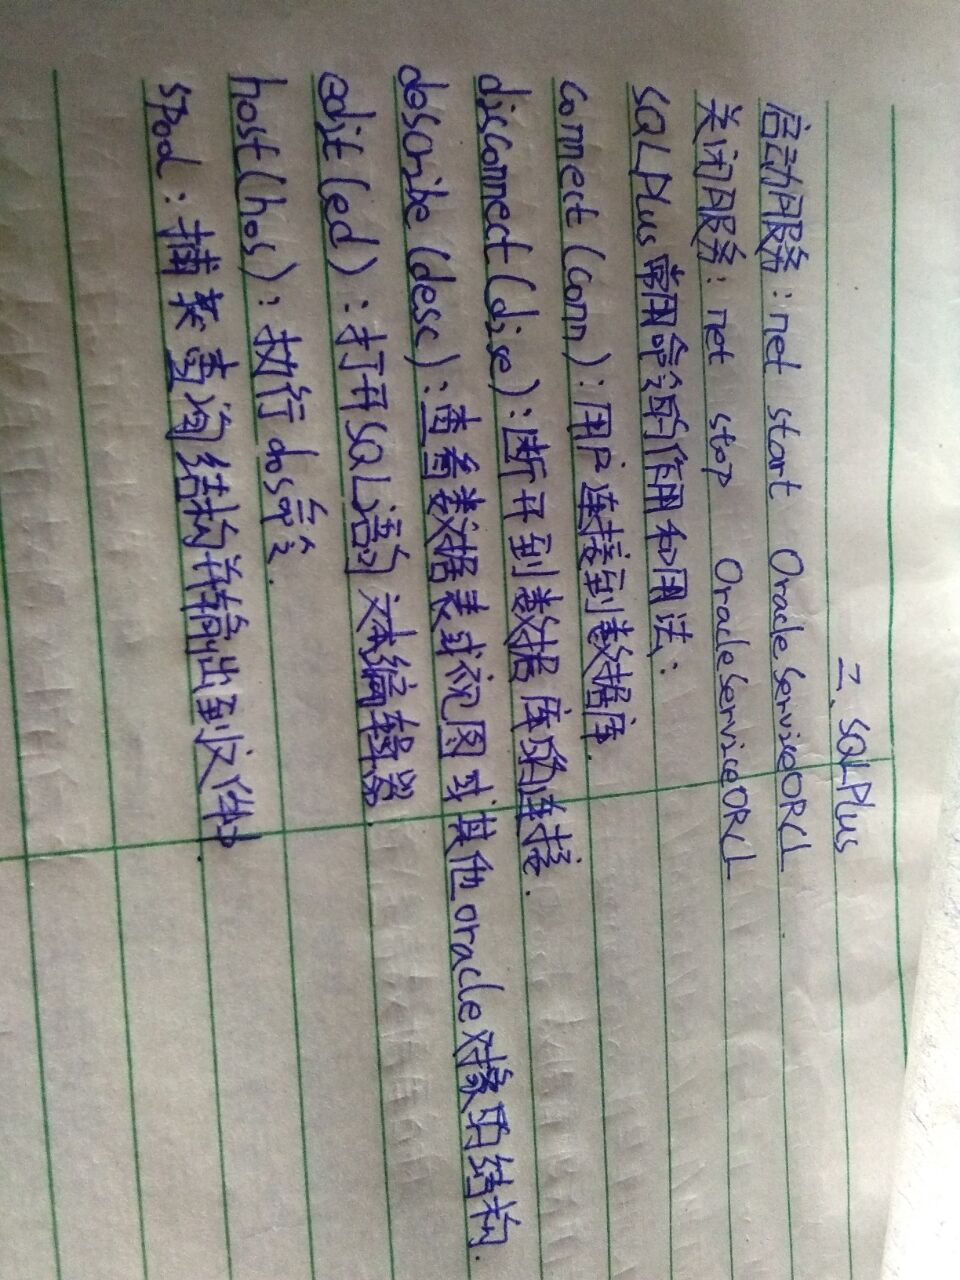 二、SQLPlus
启动服务：net start OracleServiceORCL
关闭服务：net stop OracleServiceORCL
SQLPlus常用命令的作用和用法：
connect(conn)：用户连接到数据库.
disconnect(disc)：断开到数据库的连接.
describe(desc)：查看数据表或视图或其他oracle对象的结构.
edit(ed)：打开SQL语句文本编辑器.
host(hos)：执行dos命令.
spool：捕获查询结构并输出到文件中.